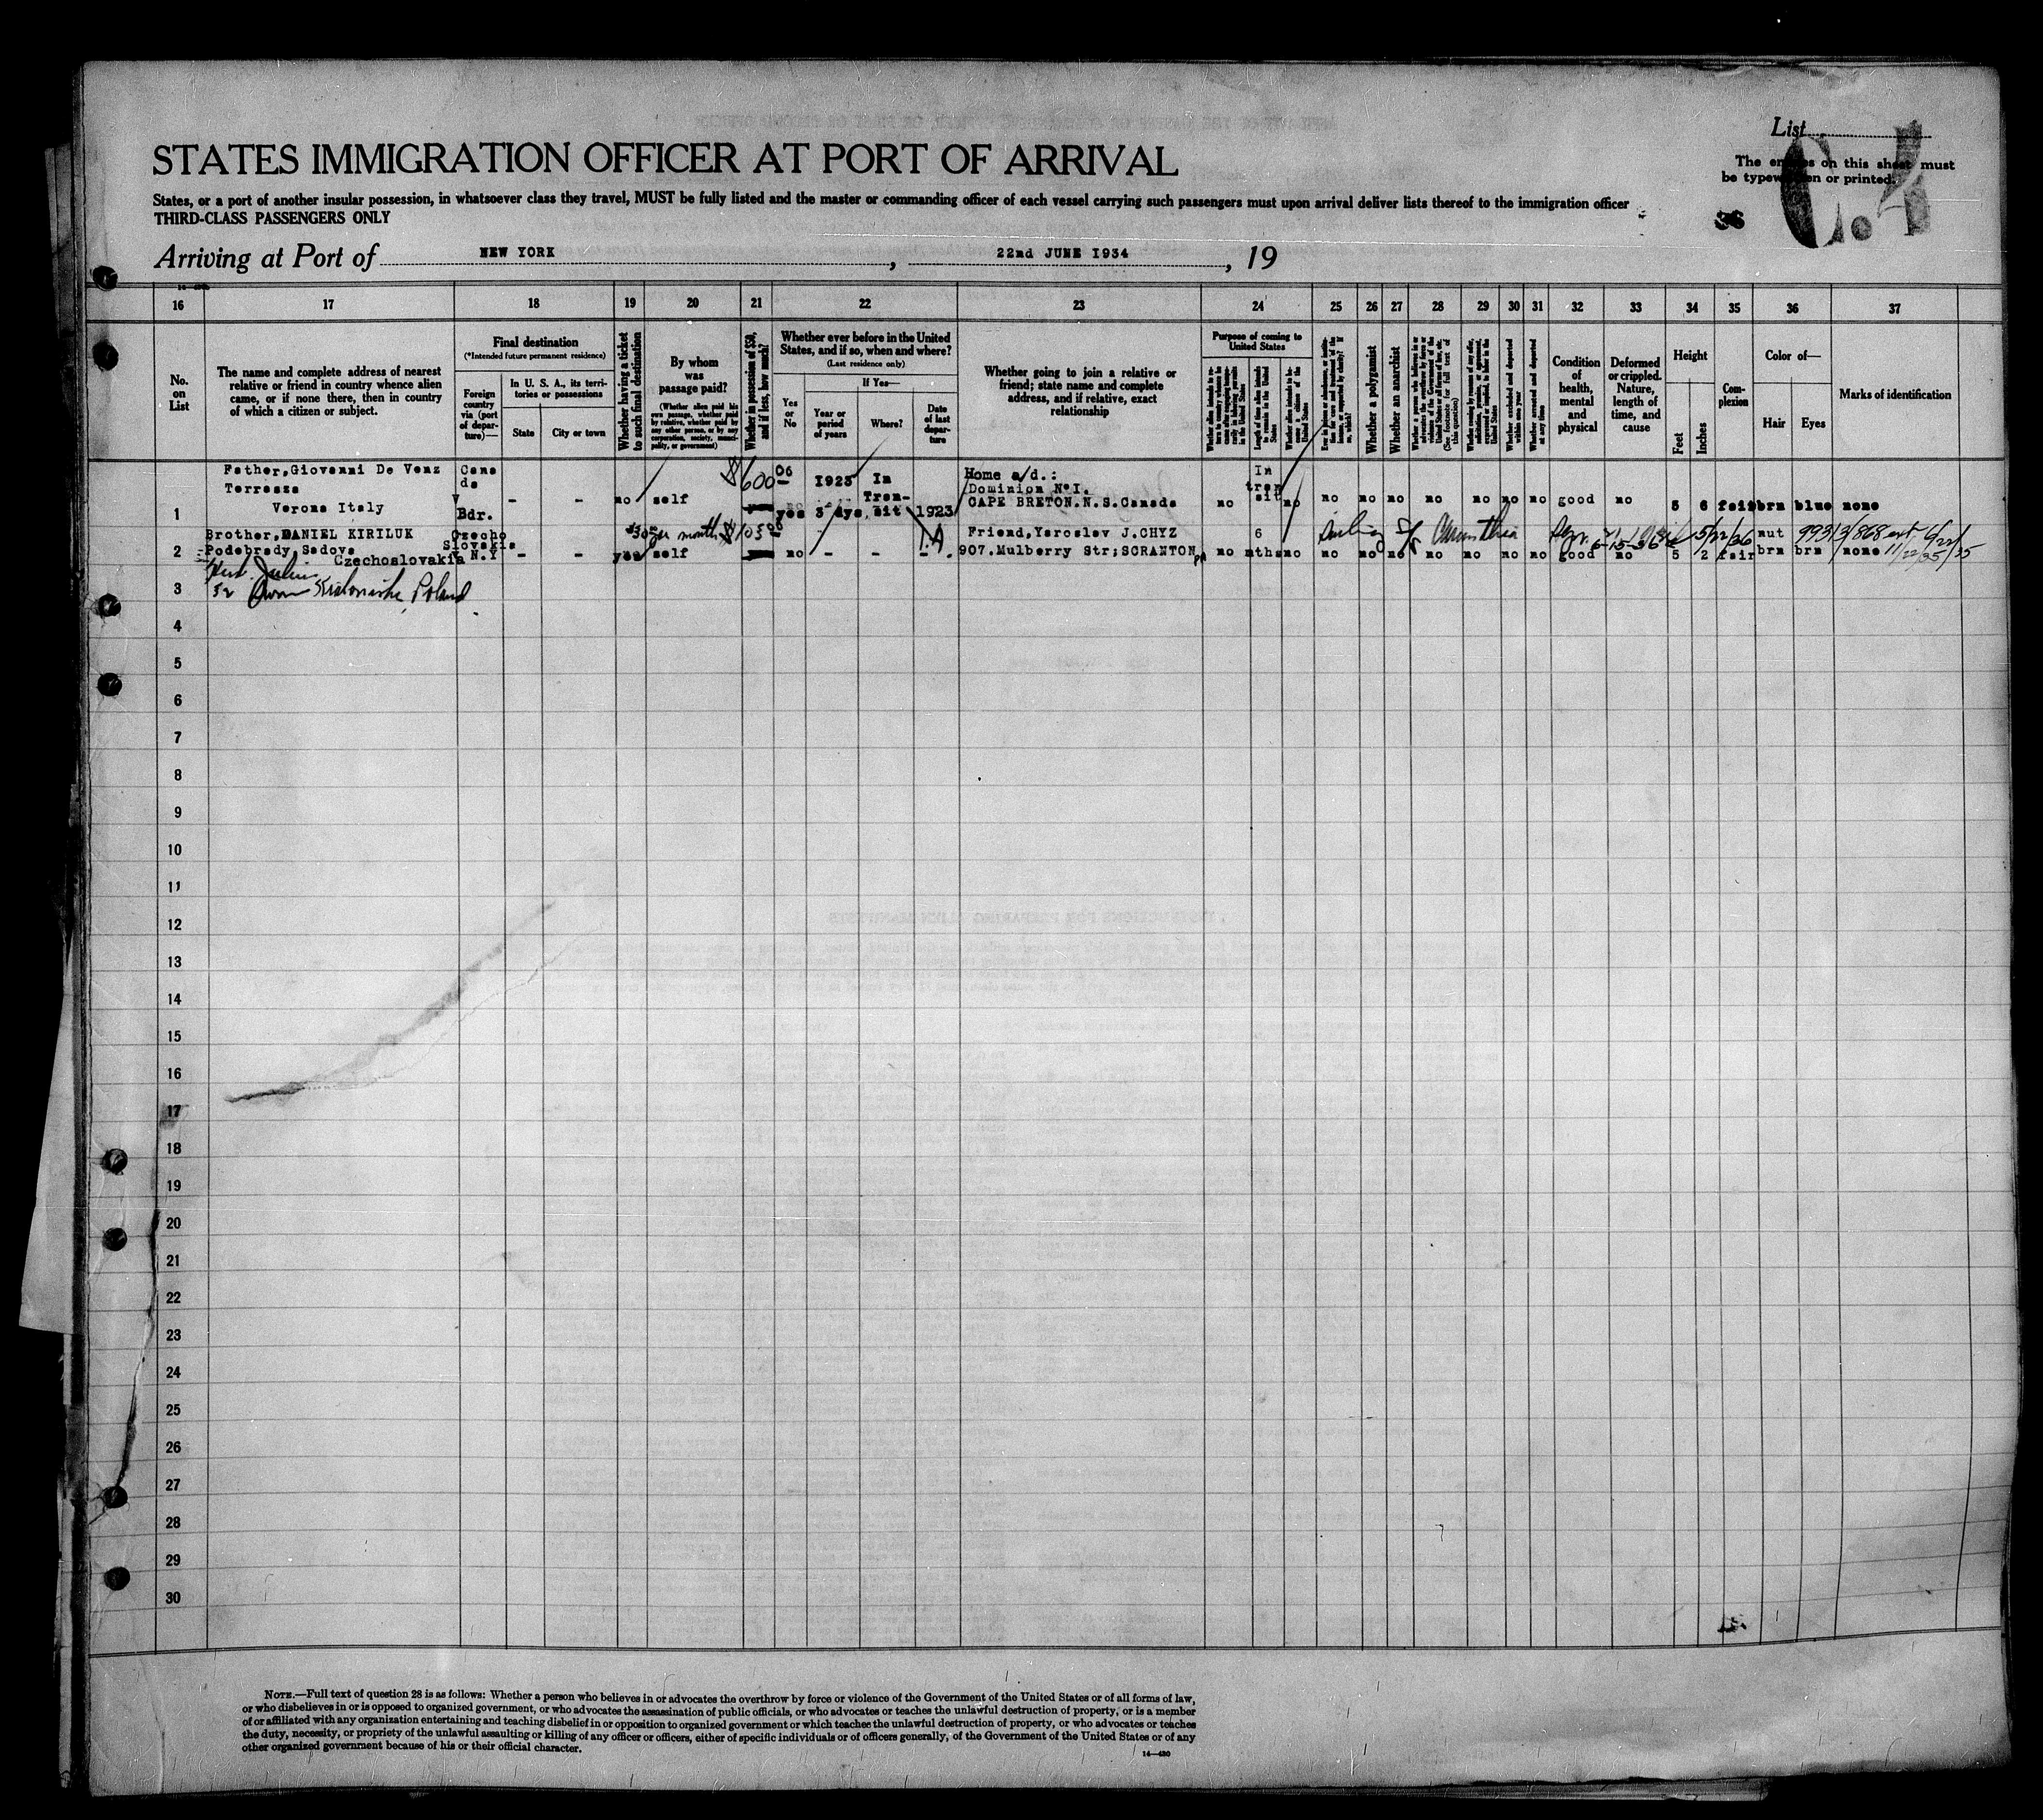 List
C.4
The entries on this sheet must
be typewritten or printed.
STATES IMMIGRATION OFFICER AT PORT OF ARRIVAL
States, or a port of another insular possession, in whatsoever class they travel, MUST be fully listed and the master or commanding officer of each vessel carrying such passengers must upon arrival deliver lists thereof to the immigration officer
THIRD-CLASS PASSENGERS ONLY
Arriving at Port of NEW YORK , 22nd JUNE 1934 , 19
16 17 18 19 20 21 22 23 24 25 26 27 28 29 30 31 32 33 34 35 36 37
No.
on
List
The name and complete address of nearest
relative or friend in country whence alien
came, or if none there, then in country
of which a citizen or subject.
Final destination
(*Intended future permanent residence)
Foreign
country
via (port
of depar-
ture)—
In U. S. A., its terri-
tories or possessions
State
City or town
Whether having a ticket
to such final destination
By whom
was
passage paid?
(Whether alien paid his
own passage, whether paid
by relative, whether paid by
any other person, or by any
corporation, society, munici-
pality, or government)
Whether in possession of $50,
and if less, how much?
Whether ever before in the United
States, and if so, when and where?
(Last residence only)
Yes
or
No
If Yes—
Year or
period
of years
Where?
Date
of last
depar-
ture
Whether going to join a relative or
friend; state name and complete
address, and if relative, exact
relationship
Purpose of coming to
United States
Length of time alien intends
to remain in the United
States
Whether alien intends to be-
come a citizen of the
United States
Whether a polygamist
Whether an anarchist
Whether excluded and deported
within one year
Whether arrested and deported
at any time
Condition
of
health,
mental
and
physical
Deformed
or crippled.
Nature,
length of
time, and
cause
Height
Feet
Inches
Com-
plexion
Color of—
Hair
Eyes
Marks of identification
Father,Giovanni De Venz Cana $600 06 1923 In Home a/d.: In
Terrazza da Dominion No I. tran
1 Verona Italy V Bdr. - - no self yes 3 dys. Tran-sit 1923 CAPE BRETON.N.S.Canada no sit no no no no no no no no good no 5 6 fair brn blue none
Brother,DANIEL KIRILUK Czecho $30 per month $105 Friend,Yaroslav J.CHYZ 6 5/22/36 nut 99313/868 ext 6/22/35
2 Podebrady,Sadova Slovakia
Czechoslovakia N.Y - - yes self no - - - 907.Mulberry Str;SCRANTON Pa no mths no no no no no no no no good no 5 2 fair brn brn none 11/22/35
3 Poland
4
5
6
7
8
9
10
11
12
13
14
15
16
17
18
19
20
21
22
23
24
25
26
27
28
29
30
NOTE.—Full text of question 28 is as follows: Whether a person who believes in or advocates the overthrow by force or violence of the Government of the United States or of all forms of law,
or who disbelieves in or is opposed to organized government, or who advocates the assassination of public officials, or who advocates or teaches the unlawful destruction of property, or is a member
of or affiliated with any organization entertaining and teaching disbelief in or opposition to organized government or which teaches the unlawful destruction of property, or who advocates or teaches
the duty, necessity, or propriety of the unlawful assaulting or killing of any officer or officers, either of specific individuals or of officers generally, of the Government of the United States or of any
other organized government because of his or their official character.
14—430